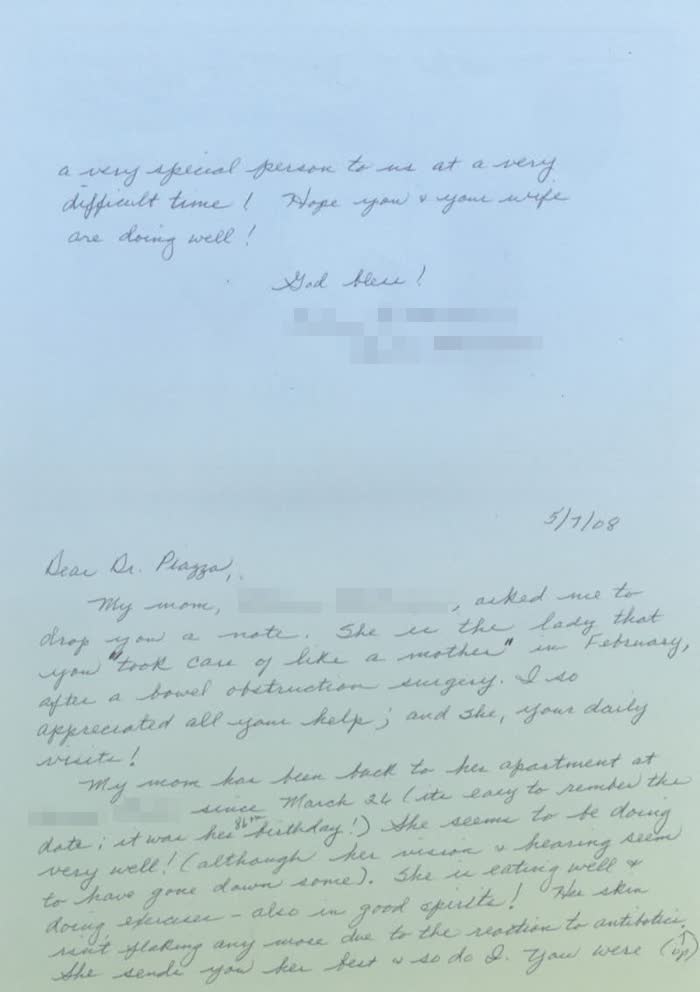 a very special person to us at a very
difficult time! Hope you & your wife
are doing well!
God bless!
5/7/08
Dear Dr. Piazza,
My mom, , asked me to
drop you a note. She is the lady that
you "took care of like a mother" in February,
after a bowel obstruction surgery. I so
appreciated all your help; and she, your daily
visits!
My mom has been back to her apartment at
since March 26 (its easy to rember the
date; it was her 86th birthday!) She seems to be doing
very well! (although her vision & hearing seem
to have gone down some). She is eating well &
doing exercises - also in good spirits! Her skin
isn't flaking any more due to the reaction to antibotics.
She sends you her best & so do I. You were (up)